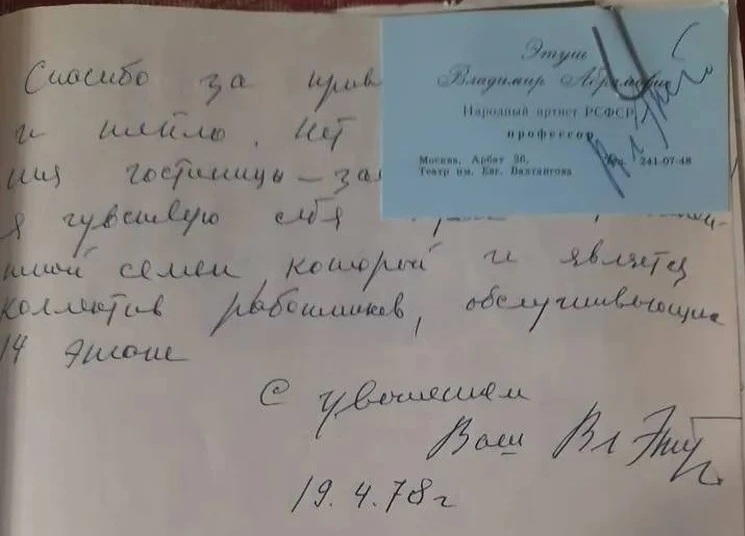 Спасибо за
и тепло. Нет
ния гостиницы —
я чувствую себя
семьи которой и является
коллектив работников, обслуживающие
14 этаж
С уважением
Ваш Вл Этуш
19.4.78г
Этуш
Владимир Абрамович
Народный артист РСФСР
профессор
Москва, Арбат 26, 241-07-48
Театр им. Евг. Вахтангова